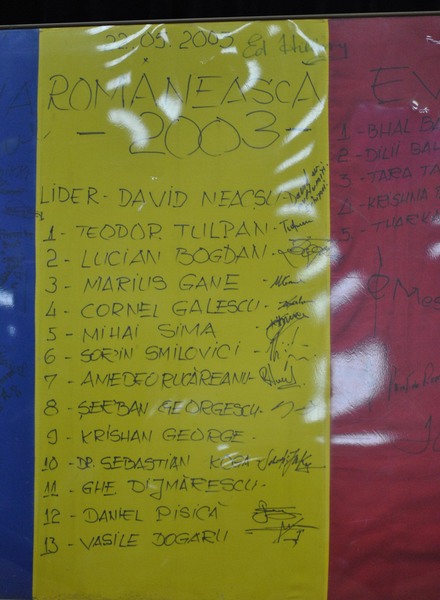 22.05.2003 Ed
ROMÂNEASCA EV
- 2003 -
LIDER - DAVID NEACȘU
1 - TEODOR TULPAN -
2 - LUCIAN BOGDAN -
3 - MARIUS GANE -
4 - CORNEL GALESCU -
5 - MIHAI SIMA
6 - SORIN SMILOVICI -
7 - AMEDEO RUCĂREANU
8 - ȘERBAN GEORGESCU -
9 - KRISHAN GEORGE -
10 - DR. SEBASTIAN KOGA
11 - GHE DIJMĂRESCU -
12 - DANIEL PISICĂ
13 - VASILE DOGARU
1 - BHAL
2 - DILII BAH
3 - TARA TA
4 - KRISHNA
5 - THARKA